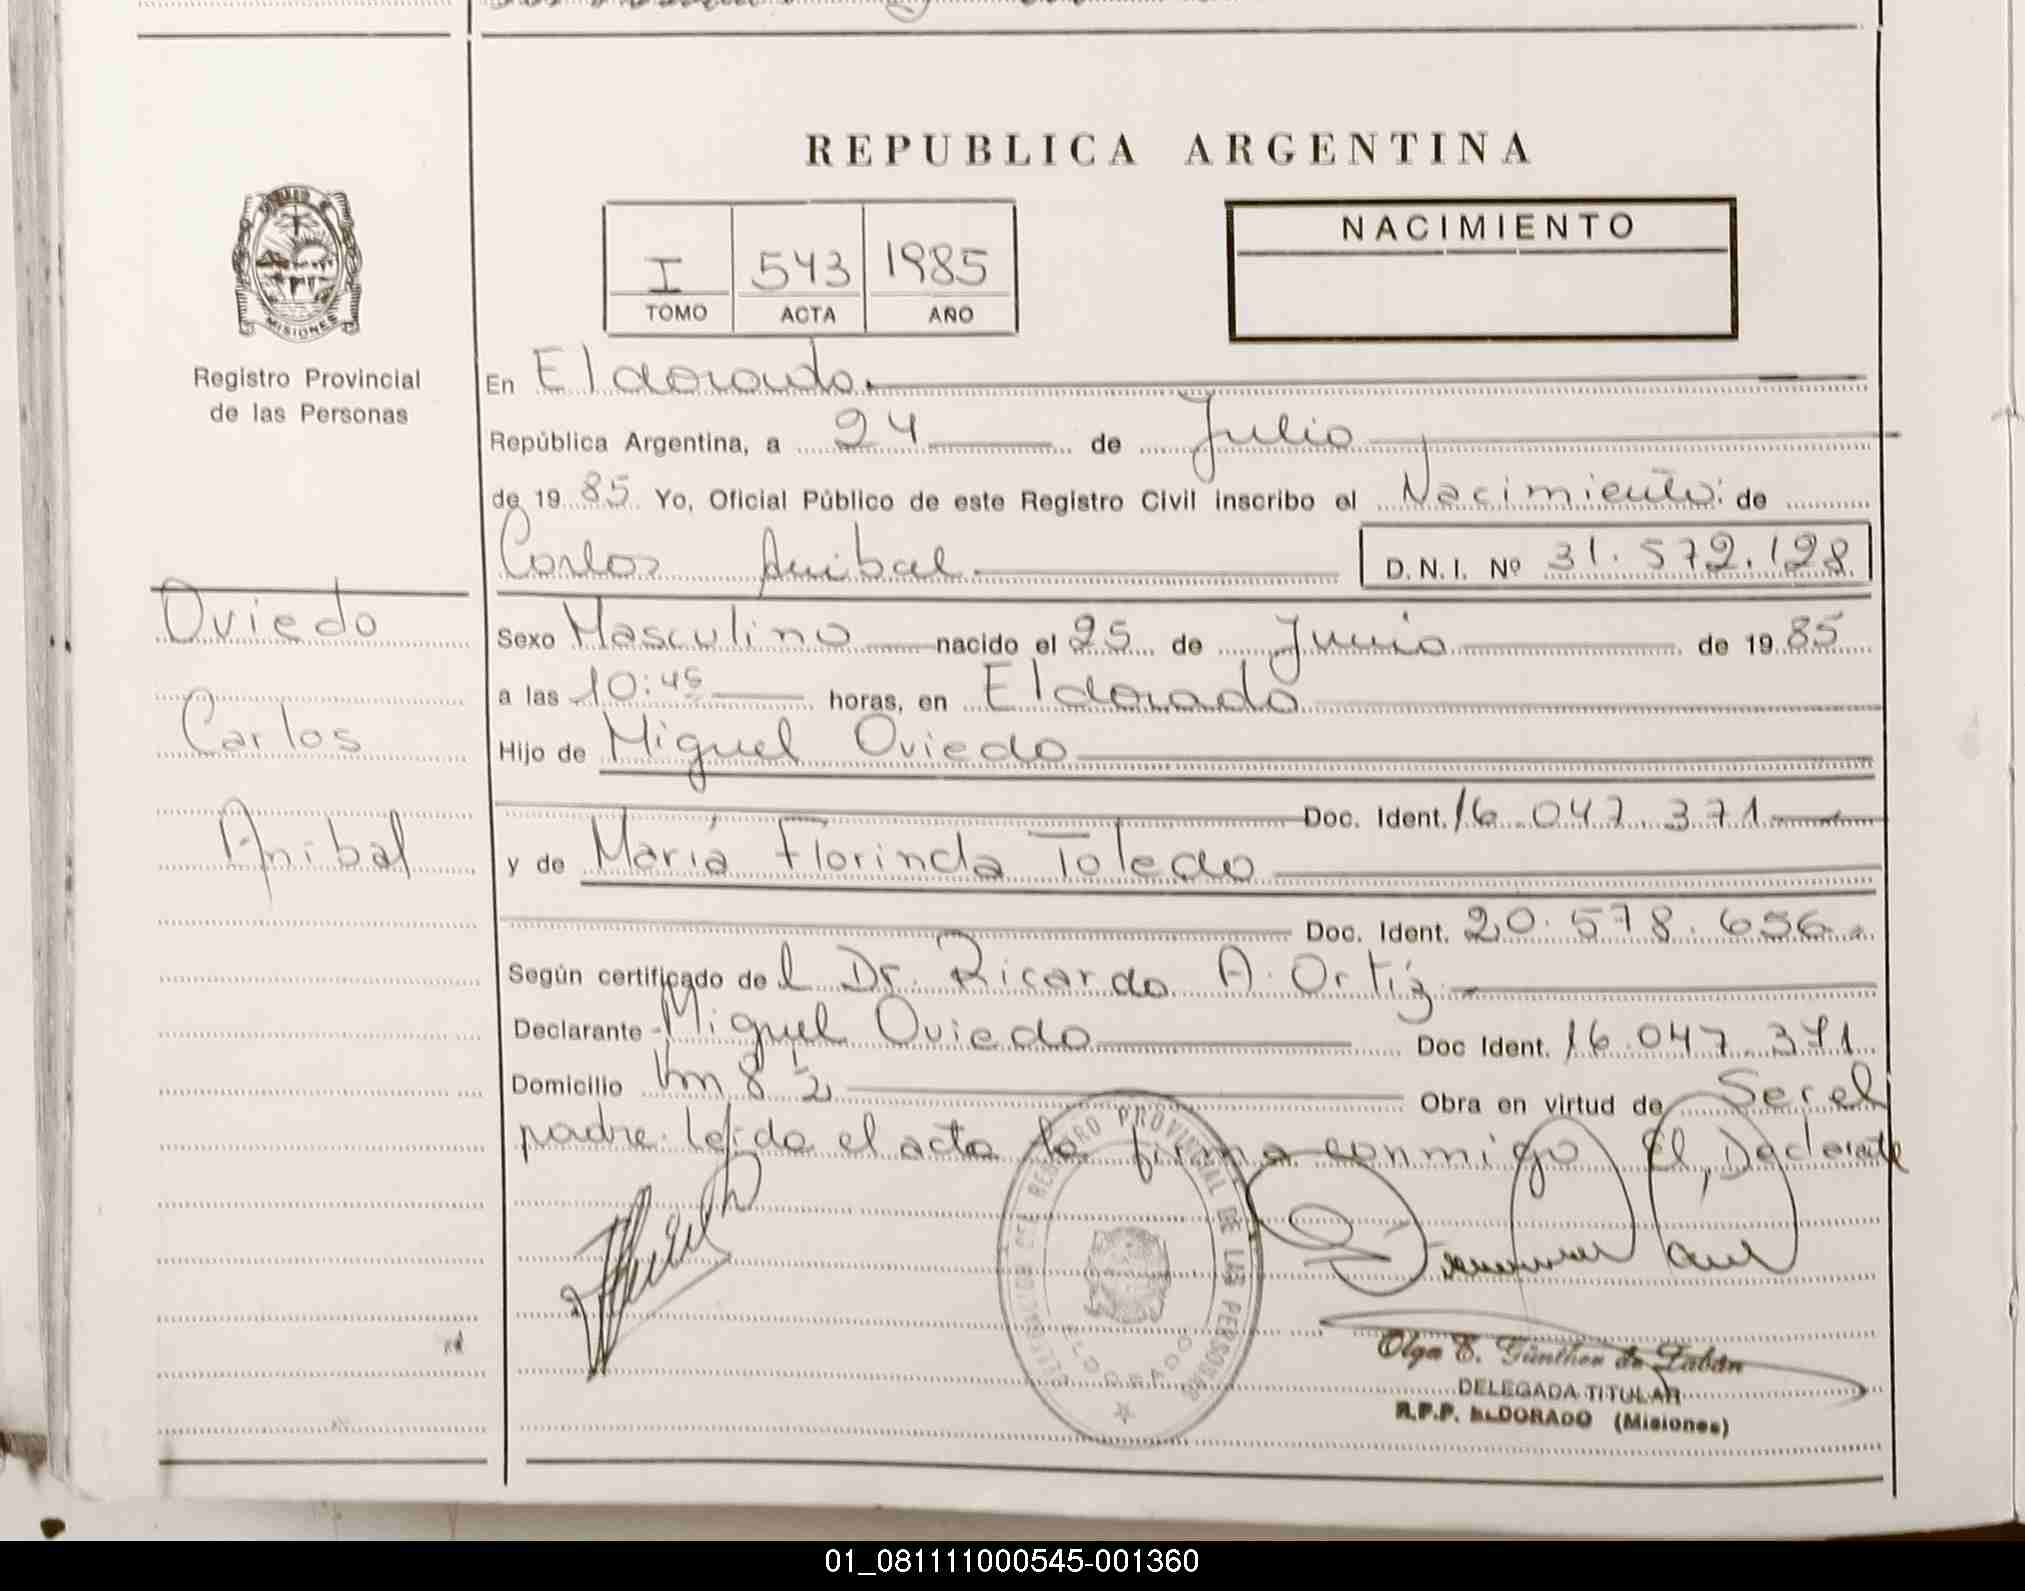 REPUBLICA ARGENTINA
I 543 1985
TOMO ACTA AÑO
NACIMIENTO
MISIONES
Registro Provincial
de las Personas
Oviedo
Carlos
Anibal
En Eldorado.
República Argentina, a 24 de Julio
de 1985 Yo, Oficial Público de este Registro Civil inscribo el Nacimiento: de
Carlos Anibal D.N.I. Nº 31.572.128
Sexo Masculino nacido el 25 de Junio de 1985
a las 10:45 horas, en Eldorado
Hijo de Miguel Oviedo
Doc. Ident. 16.047.371
y de María Florinda Toledo
Doc. Ident. 20.578.656
Según certificado del Dr. Ricardo A. Ortiz
Declarante Miguel Oviedo Doc Ident. 16.047.371
Domicilio Km 8 ½ Obra en virtud de Ser el
padre. Leida el acta la firma conmigo El, Declarante
REGISTRO PROVINCIAL DE LAS PERSONAS
ELDORADO
Olga E. Günther de Zabán
DELEGADA TITULAR
R.P.P. ELDORADO (Misiones)
01_081111000545-001360